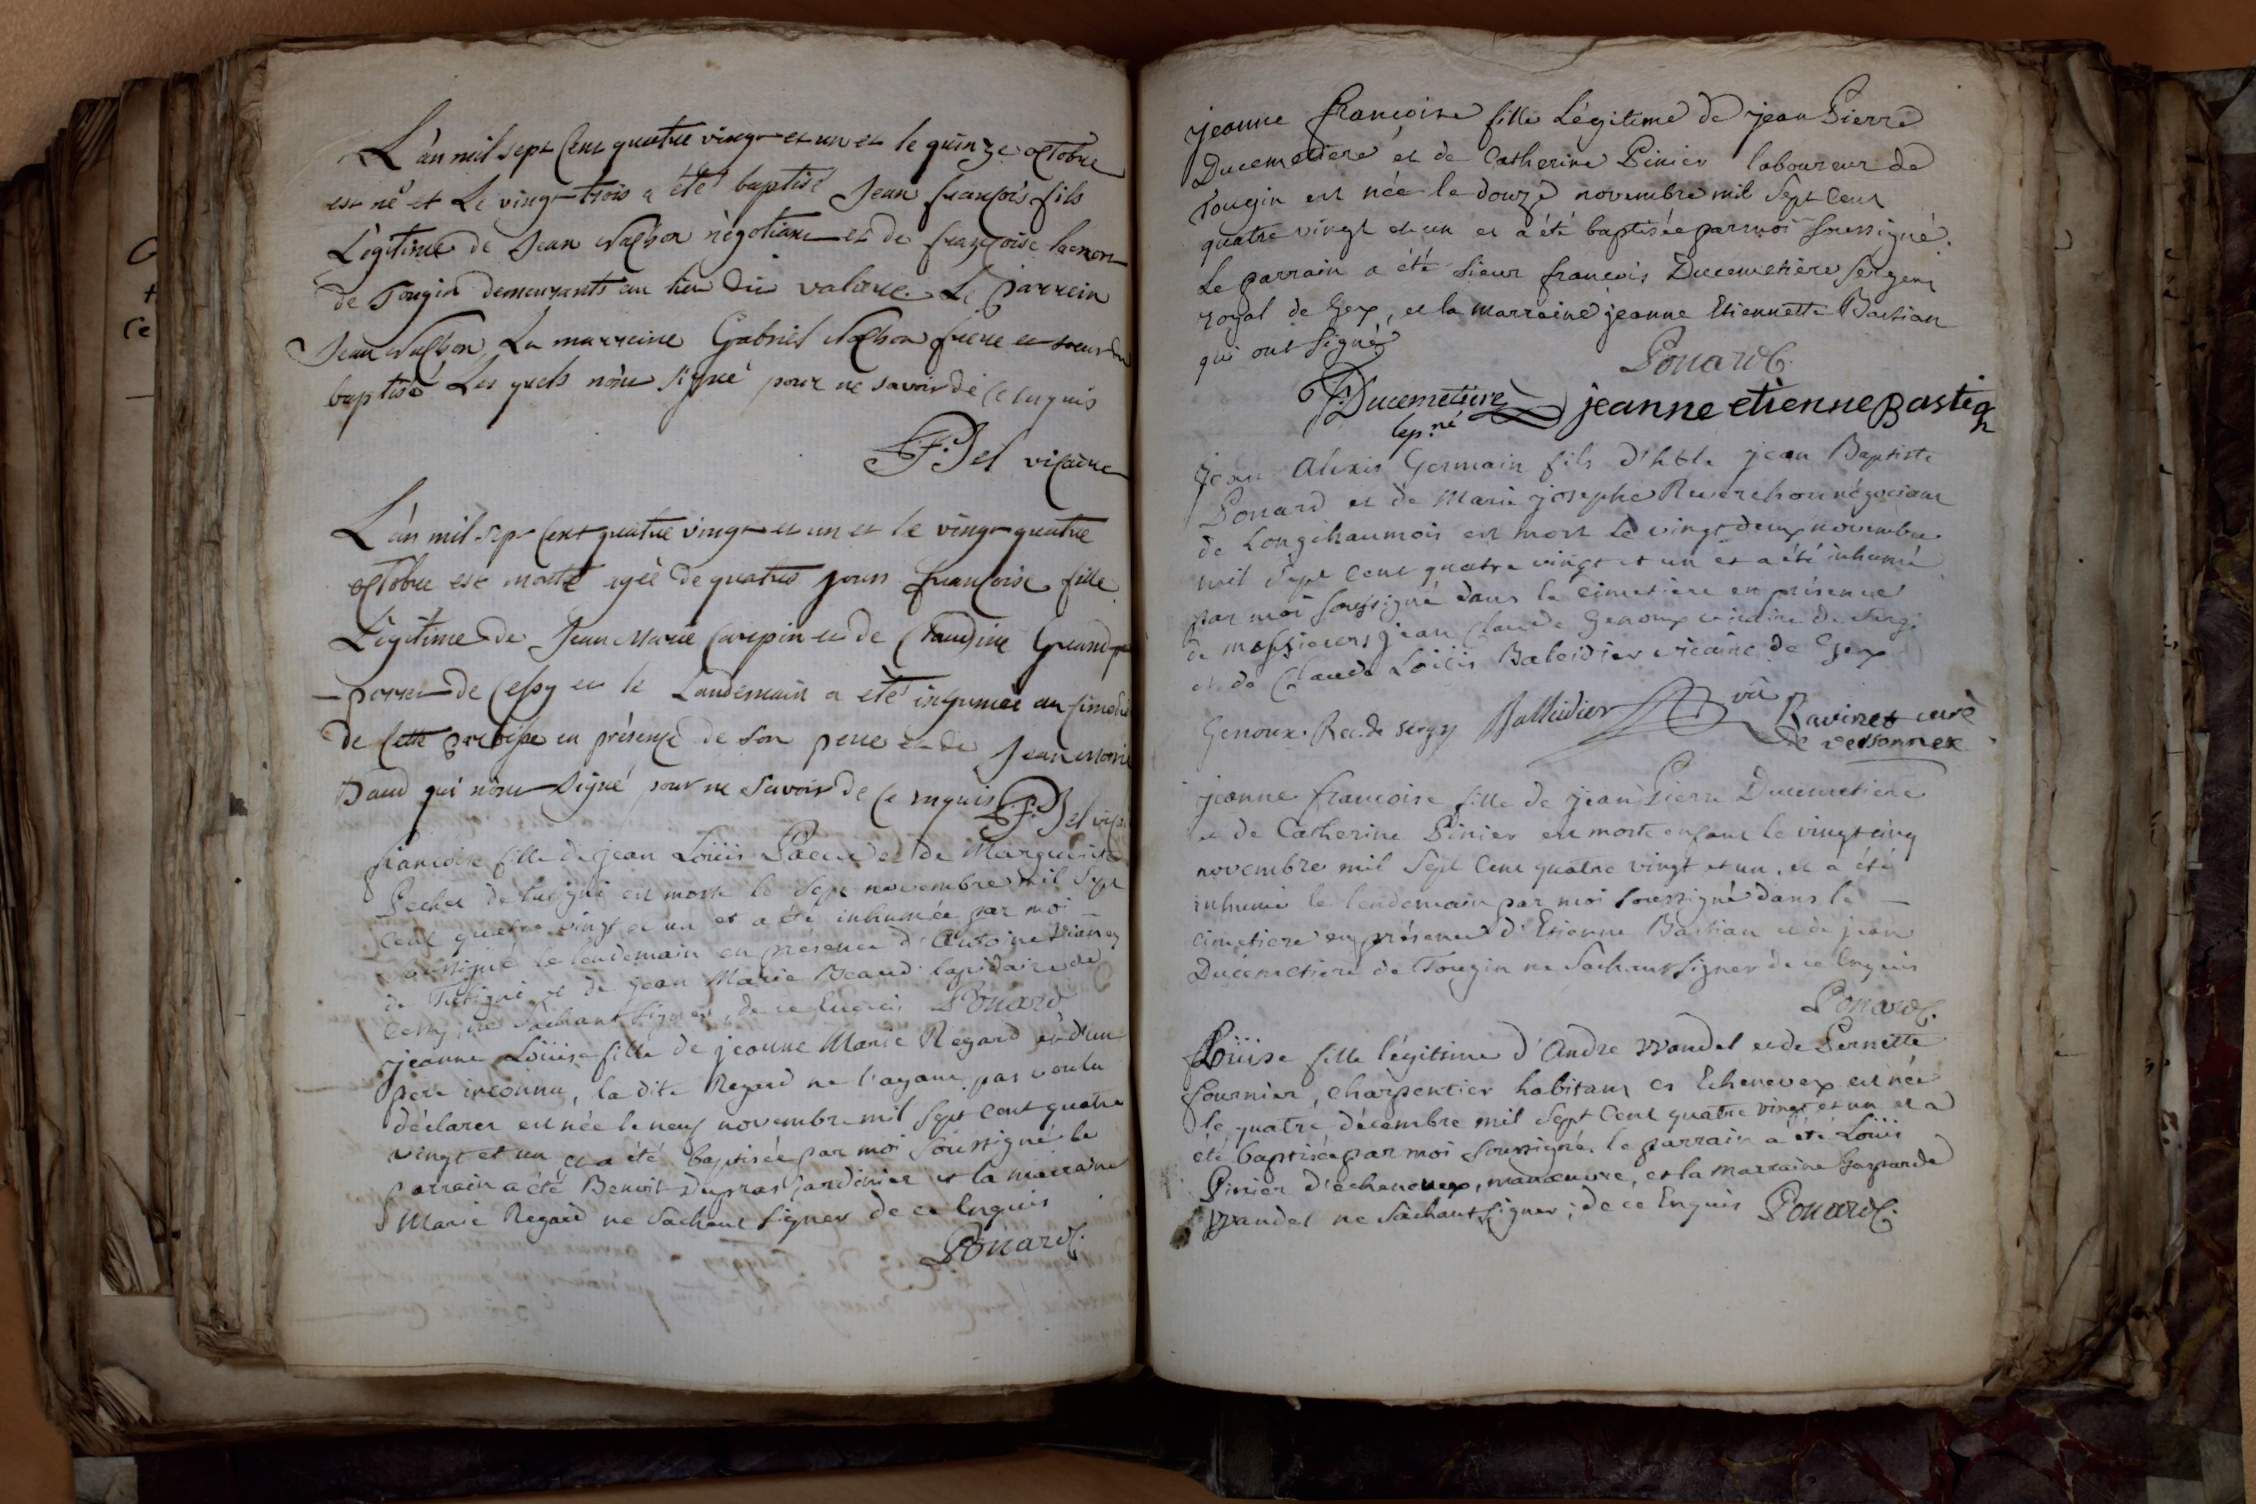 L'an mil sept Cent quatre vingt et un et le quinze octobre
est né et Le vingt trois a été baptisé Jean françois fils
Légitime de Jean négotiant et de françoise
de Tougin demeurants au lieu dit Le Parrein
Jean La marreine Gabriel frere et soeur du
baptisé Les quels n'ont signé pour ne savoir de ce enquis
F. Bel vicaire
L'an mil sept Cent quatre vingt et un et le vingt quatre
octobre est morte agée de quatres jours françoise fille
Légitime de Jean Marie Carepin et de Claudine Grand
perret de Cessy et le Landemain a été inhumée au
de Cette en présence de son pere et de Jean Marie
Baud qui n'ont Signé pour ne Savoir de ce enquis F. Bel
françoise fille de jean Loüis et de Marguerite
Pechet de Tutigni est morte le Sept novembre mil Sept
Cent quatre vingt et un et a été inhumée par moi
soussigné le lendemain en presence d'Antoine
de Tutigni et de jean Marie Beaud lapidaire de
Cessy, ne Sachant signer, de ce Enquis Ponard
jeanne Loüise fille de jeanne Marie Regard et d'un
pere inconnu, la dite Regard ne l'ayant pas voulu
déclarer est née le neuf novembre mil Sept Cent quatre
vingt et un et a été baptisée par moi Soussigné le
parrain a été Benoit Dupras jardinier et la marraine
Marie Regard ne Sachant Signer de ce Enquis
Ponard C.
jeanne françoise fille Légitime de jean Pierre
Ducemetiere et de Catherine Pinier laboureur de
Tougin est née le douze novembre mil Sept Cent
quatre vingt et un et a été baptisée par moi Soussigné.
Le parrain a été Sieur françois Ducemetière Sergent
royal de Gex, et la marraine jeanne Etiennette Bastian
qui ont Signé
Ponard C.
F. Ducemetiere jeanne etienne Bastian
jean Alexis Germain fils d'hble jean Baptiste
Ponard et de Marie josephe Reverchon négociant
de Longchaumois est mort le vingt deux novembre
mil Sept Cent quatre vingt et un et a été inhumé
par moi Soussigné dans le cimetiere en présence
de messieurs jean Claude Genoux vicaire de Sergi
et de Claude Loüis Baleidier vicaire de Gex
Genoux Rec. de Sergy Balleidier vic Ravinet curé
de versonnex
jeanne françoise fille de jean Pierre Ducemetiere
et de Catherine Pinier est morte enfant le vingt cinq
novembre mil Sept Cent quatre vingt et un, et a été
inhumé le lendemain par moi Soussigné dans le
cimetiere en présence d'Etienne Bastian et de jean
Ducemetiere de Tougin ne Sachant signer de ce Enquis
Ponard C.
Loüise fille légitime d'André Wandel et de Pernette
fournier, Charpentier habitant a Echenevex est née
le quatre décembre mil Sept Cent quatre vingt et un et a
été baptisée par moi Soussigné. le parrain a été Loüis
Pinier d'echenevex, manoeuvre, et la marraine Gasparde
Wandel ne Sachant Signer; de ce Enquis Ponard C.